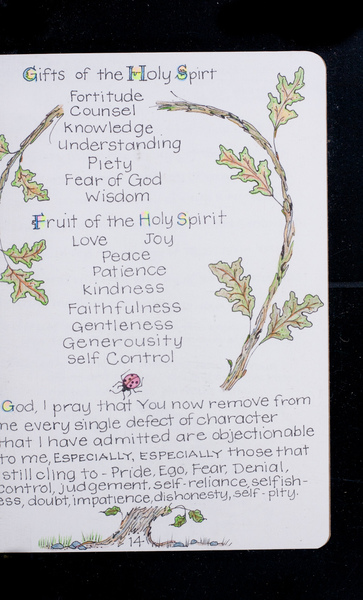 Gifts of the Holy Spirt
Fortitude
Counsel
Knowledge
Understanding
Piety
Fear of God
Wisdom
Fruit of the Holy Spirit
Love Joy
Peace
Patience
Kindness
Faithfulness
Gentleness
Generousity
Self Control
God, I pray that You now remove from
me every single defect of character
that I have admitted are objectionable
to me, ESPECIALLY, ESPECIALLY those that
I still cling to - Pride, Ego, Fear, Denial,
Control, judgement, self-reliance, selfish-
ness, doubt, impatience, dishonesty, self-pity.
14